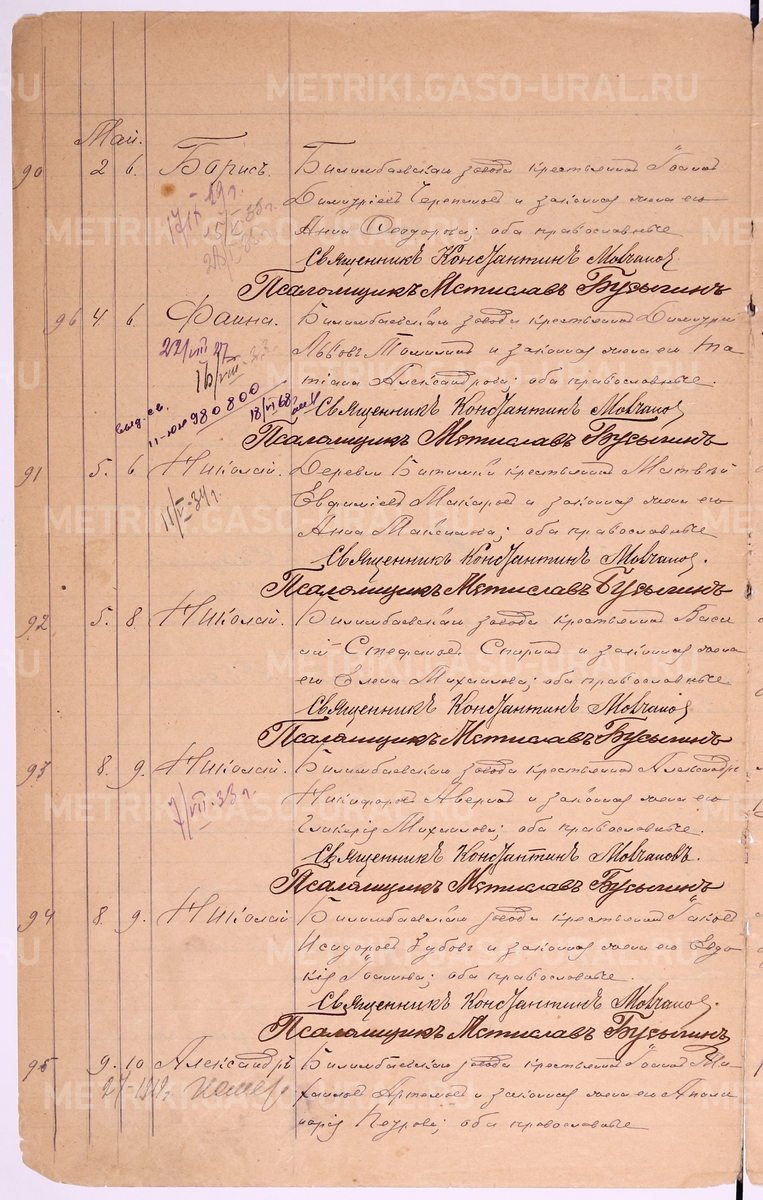 METRIKI.GASO-URAL.RU
Май.
90 2 6. Борисъ. Билимбаевскаго завода крестьянинъ Іоаннъ
Димитріевъ Черепановъ и законная жена его
Анна Феодорова; оба православные
Священникъ Константинъ Мовчановъ
Псаломщикъ Мстиславъ Бусыгинъ
96 4 6. Фаина. Билимбаевскаго завода крестьянинъ Димитрій
22/VIII 27
Львовъ и законная жена его Та-
16/VIII-33
тіана Александрова; оба православные.
выд. св.
11-юл 980800
18/VI 68
Священникъ Константинъ Мовчановъ
Псаломщикъ Мстиславъ Бусыгинъ
91 5. 6 Николай. Деревни Битимки крестьянинъ Матвѣй
Евфиміевъ Макаровъ и законная жена его
Анна Максимова; оба православные
Священникъ Константинъ Мовчановъ.
Псаломщикъ Мстиславъ Бусыгинъ
92 5. 8 Николай. Билимбаевскаго завода крестьянинъ Васи-
лій Стефановъ и законная жена
его Елена Михаилова; оба православные
Священникъ Константинъ Мовчановъ
Псаломщикъ Мстиславъ Бусыгинъ
93 8. 9. Николай. Билимбаевскаго завода крестьянинъ Александръ
7/VII-33 г
Никифоровъ и законная жена его
Гликерія Михаилова; оба православные.
Священникъ Константинъ Мовчановъ.
Псаломщикъ Мстиславъ Бусыгинъ
94 8. 9. Николай Билимбаевскаго завода крестьянинъ Іаковъ
Исидоровъ Зубовъ и законная жена его Евдо-
кія Іоаннова; оба православные.
Священникъ Константинъ Мовчановъ.
Псаломщикъ Мстиславъ Бусыгинъ
95 9. 10 Александръ Билимбаевскаго завода крестьянинъ Іоаннъ Ми-
хаиловъ Артемовъ и законная жена его Аполи-
нарія Петрова; оба православные